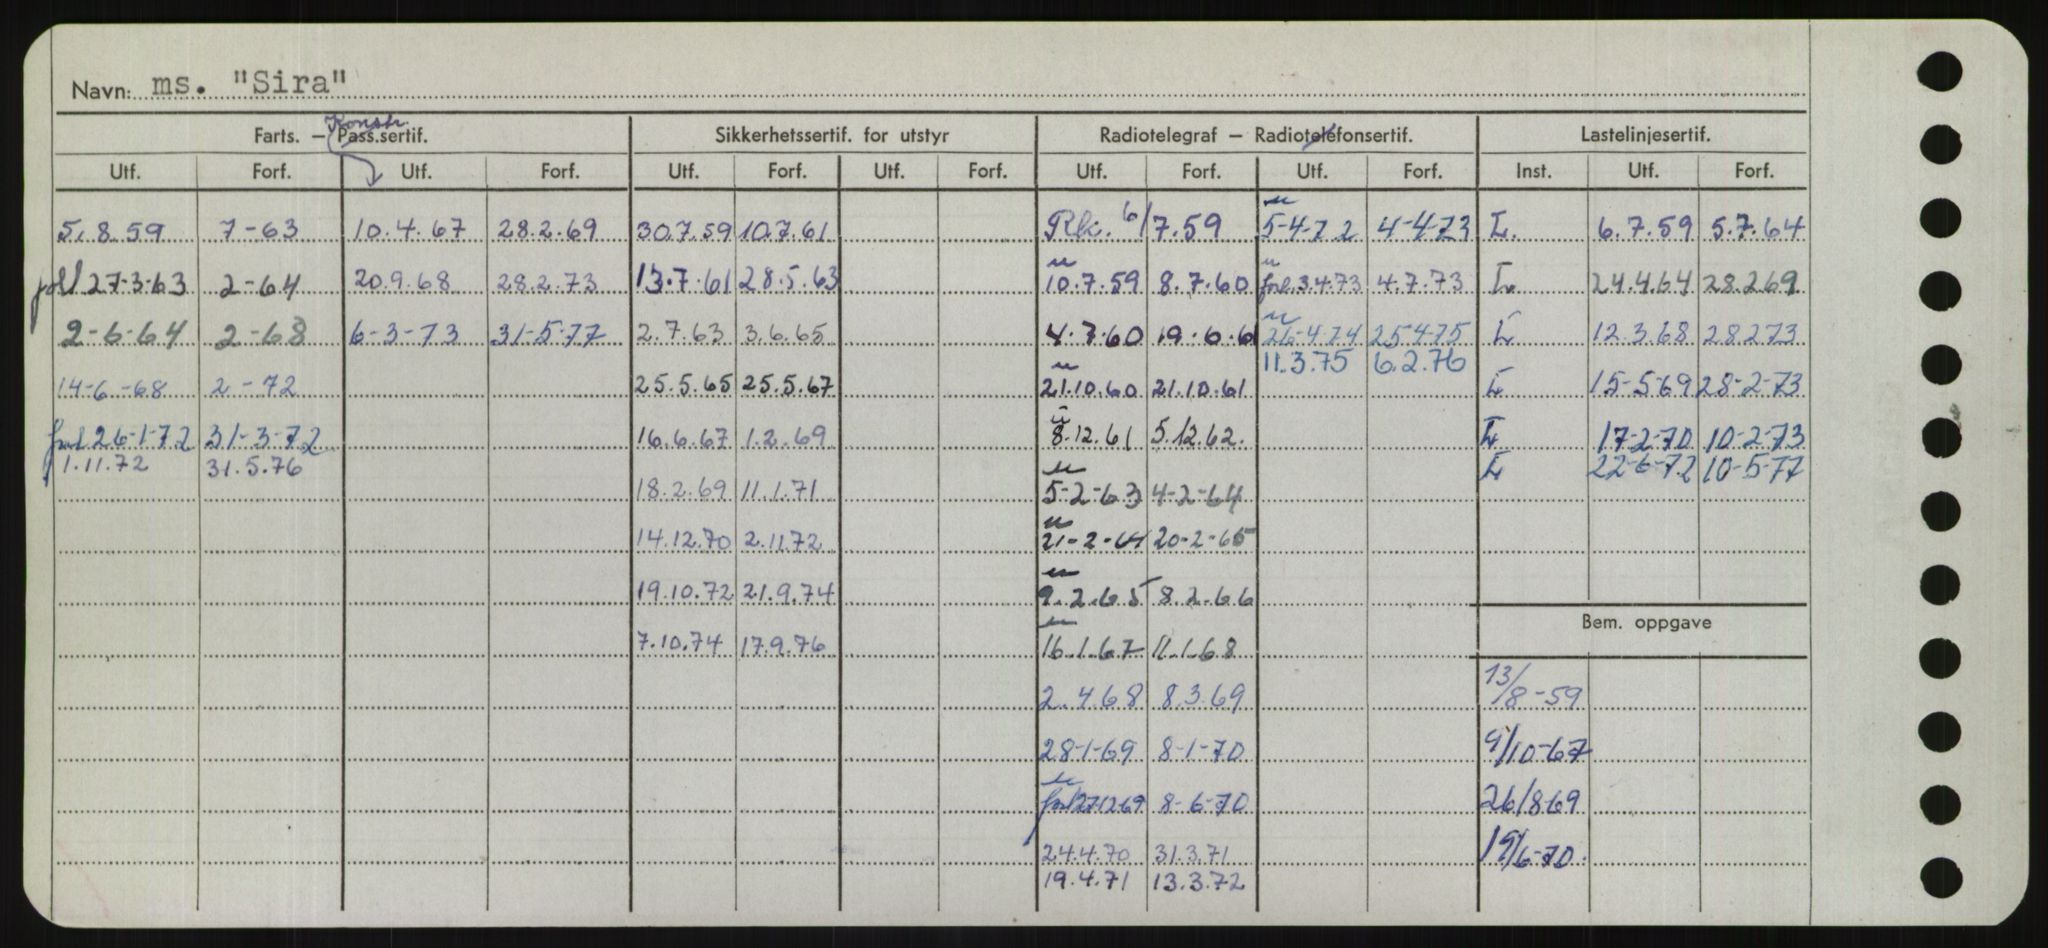 Navn: ms. "Sira"
Konstr.
Farts. — Pass.sertif. Sikkerhetssertif. for utstyr Radiotelegraf — Radiotelefonsertif. Lastelinjesertif.
Utf. Forf. Utf. Forf. Utf. Forf. Utf. Forf. Utf. Forf. Utf. Forf. Inst. Utf. Forf.
5.8.59 7-63 10.4.67 28.2.69 30.7.59 10.7.61 Rk. 6/7.59 5-4-72 4-4-73 L. 6.7.59 5.7.64
forl 27-3-63 2-64 20.9.68 28.2.73 13.7.61 28.5.63 10.7.59 8.7.60 forl. 3.4.73 4.7.73 L 24.4.64 28.2.69
2-6-64 2-68 6-3-73 31-5-77 2.7.63 3.6.65 4.7.60 19.6.61 26-4-74 25-4-75 L 12.3.68 28.2.73
11.3.75 6.2.76
14-6-68 2-72 25.5.65 25.5.67 21.10.60 21.10.61 L 15-5-69 28-2-73
forl 26-1-72 31-3-72 16.6.67 1.2.69 8.12.61 5.12.62. L 17-2-70 10-2-73
1.11.72 31.5.76 L 22-6-72 10-5-77
18.2.69 11.1.71 5-2-63 4-2-64
14.12.70 2.11.72 21-2-64 20-2-65
19.10.72 21.9.74 9.2.65 8.2.66
Bem. oppgave
7.10.74 17.9.76 16.1.67 11.1.68
2.4.68 8.3.69 13/8-59
28-1-69 8-1-70 9/10-67
forl 27.12.69 8-6-70 26/8 69
24.4.70 31.3.71 19/6-70.
19.4.71 13.3.72